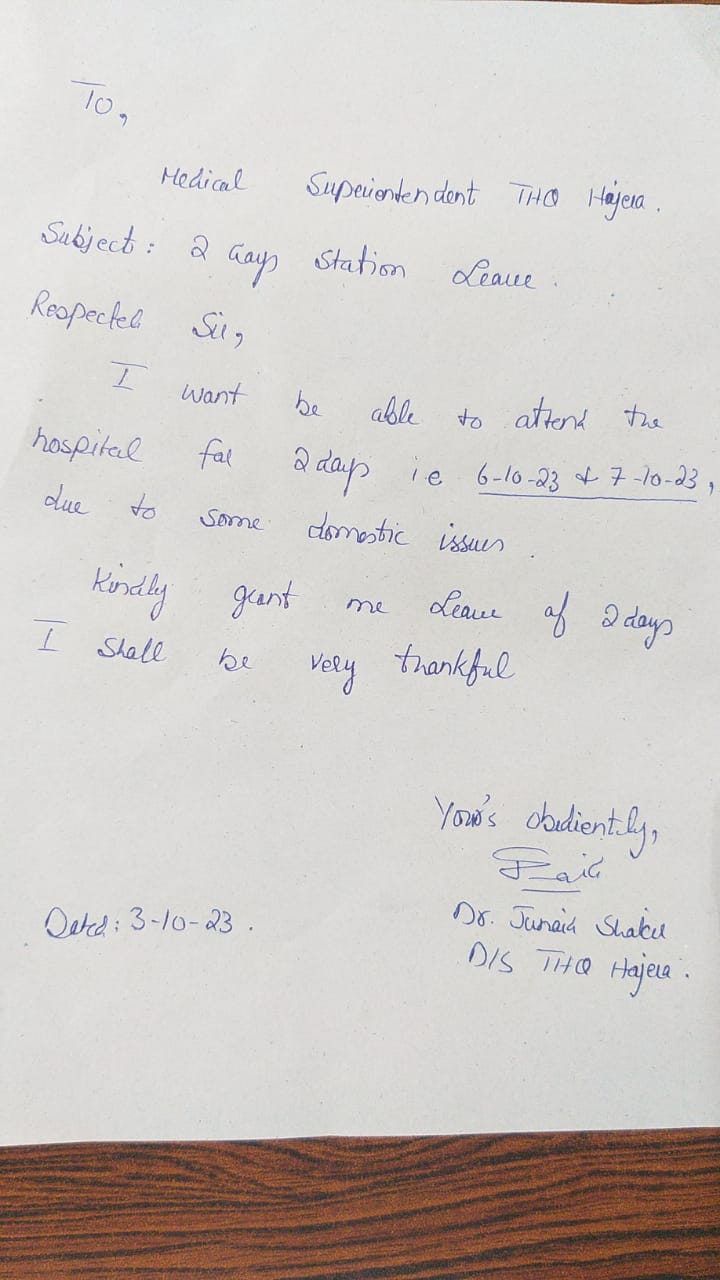 To,
Medical Superientendent THQ Hajera.
Subject: 2 days Station Leave.
Respected Sir,
I want be able to attend the
hospital for 2 days i.e 6-10-23 & 7-10-23,
due to some domestic issues.
Kindly grant me Leave of 2 days
I shall be very thankful
Your's obediently,
Dr. Junaid Shakil
Dated: 3-10-23.
D/S THQ Hajera.